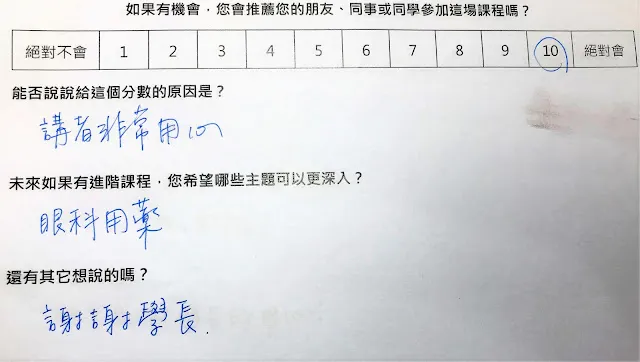 如果有機會，您會推薦您的朋友、同事或同學參加這場課程嗎？
絕對不會 1 2 3 4 5 6 7 8 9 10 絕對會
能否說說給這個分數的原因是？
講者非常用心
未來如果有進階課程，您希望哪些主題可以更深入？
眼科用藥
還有其它想說的嗎？
謝謝學長.